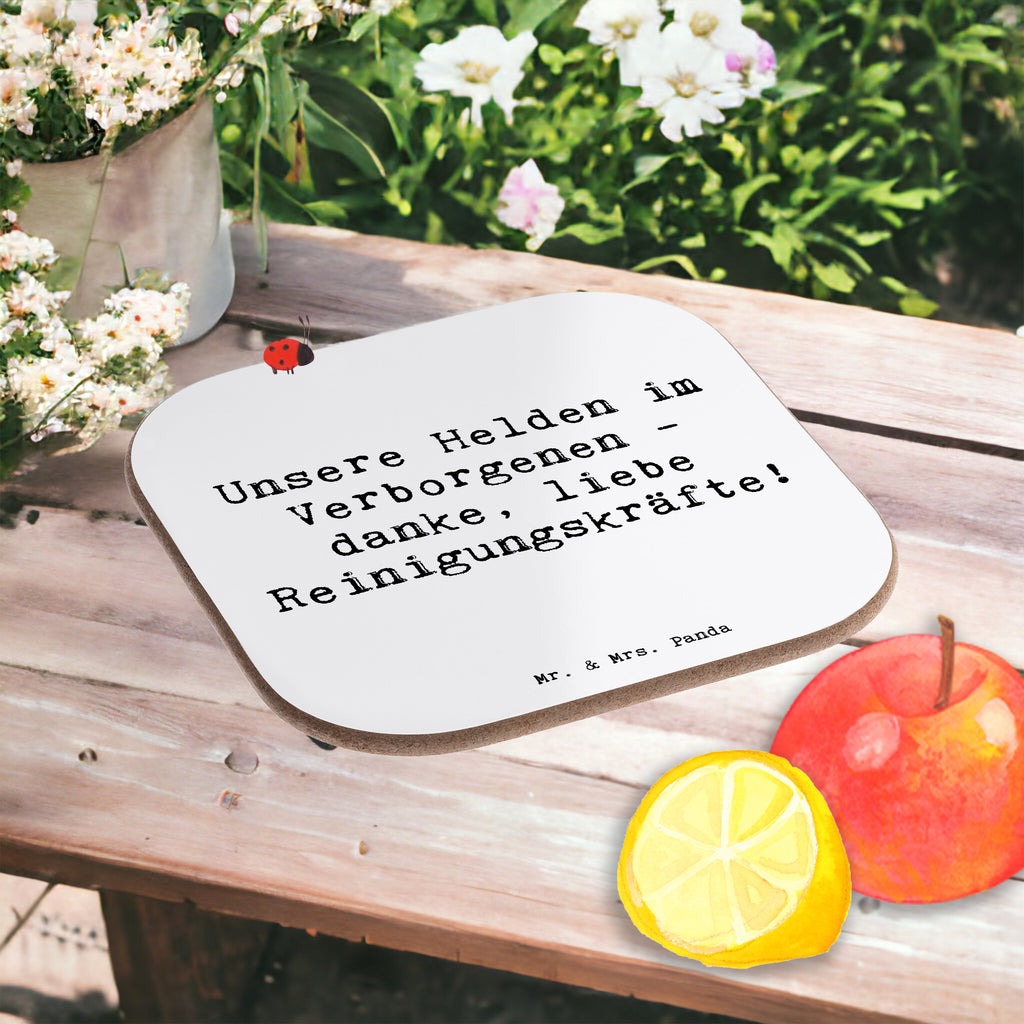 Unsere Helden im
Verborgenen -
danke, liebe
Reinigungskräfte!
Mr. & Mrs. Panda